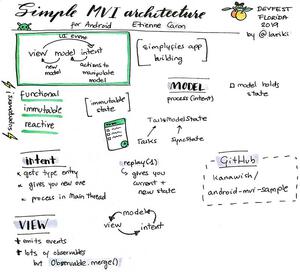 Simple MVI architecture
for Android
Etienne Caron
DEVFEST
FLORIDA
2019
by @lariki
UI event
view model intent
new model
Actions to manipulate model
simplyfies app
building
foundations
functional
immutable
reactive
immutable
state
MODEL
process (intent)
model holds
state
TasksModelState
Tasks
SyncState
intent
gets type entry
gives you new one
process in Main Thread
replay(1)
gives you
current +
new state
GitHub
kanawish/
android-mvi-sample
VIEW
emits events
lots of observables
but Observable.merge()
model
view
intent